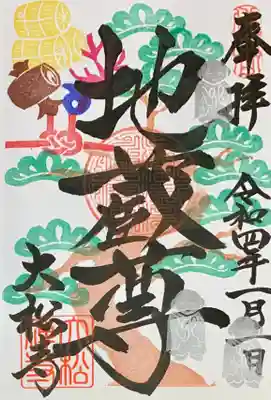 奉拝
令和四年一月一日
地蔵尊
大松寺